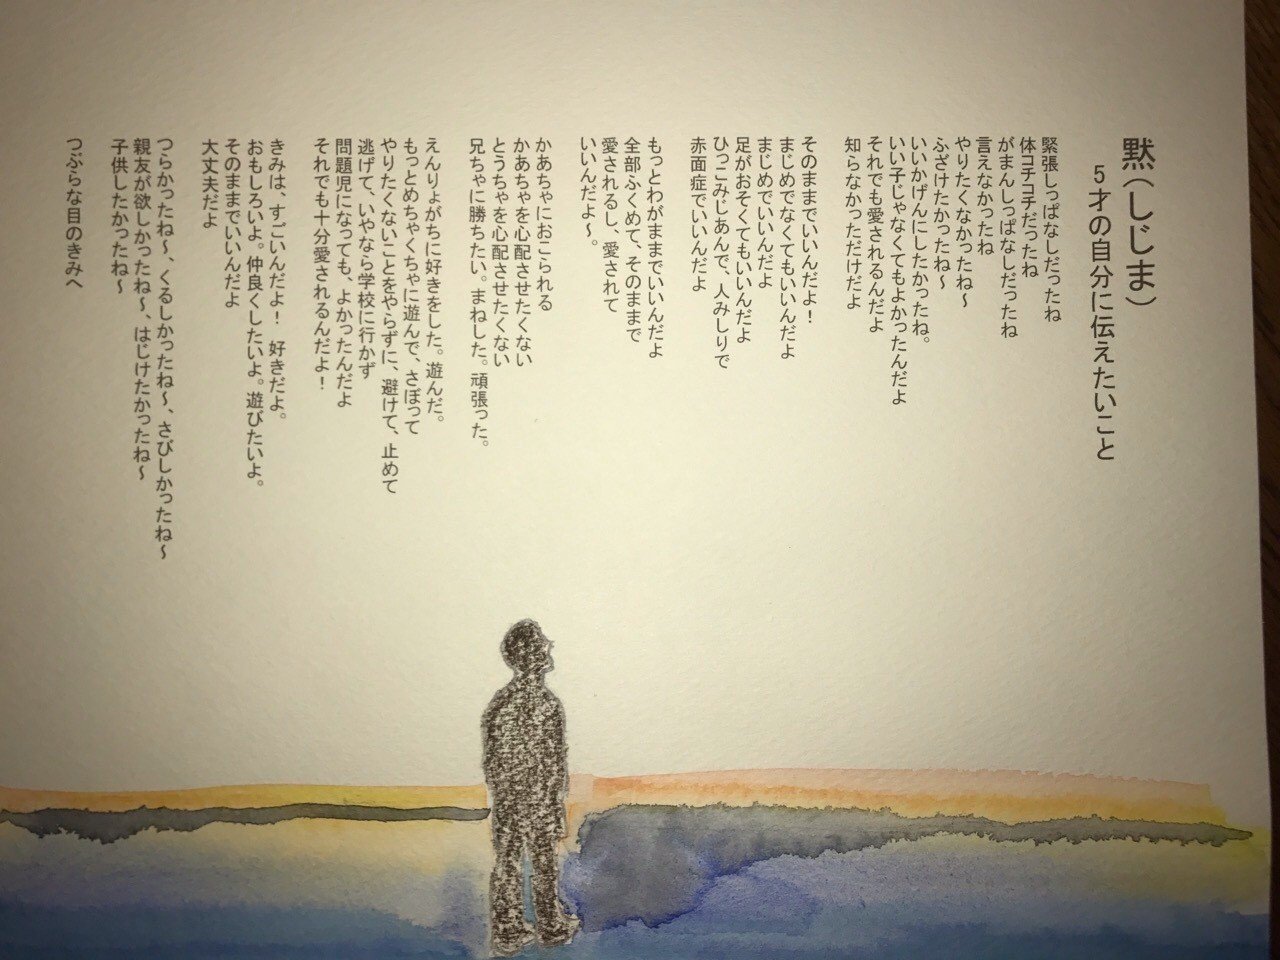 黙(しじま)
5才の自分に伝えたいこと
緊張しっぱなしだったね
体コチコチだったね
がまんしっぱなしだったね
言えなかったね
やりたくなかったね～
ふざけたかったね～
いいかげんにしたかったね。
いい子じゃなくてもよかったんだよ
それでも愛されるんだよ
知らなかっただけだよ
そのままでいいんだよ！
まじめでなくてもいいんだよ
まじめでいいんだよ
足がおそくてもいいんだよ
ひっこみじあんで、人みしりで
赤面症でいいんだよ
もっとわがままでいいんだよ
全部ふくめて、そのままで
愛されるし、愛されて
いいんだよ～。
かあちゃにおこられる
かあちゃを心配させたくない
とうちゃを心配させたくない
兄ちゃに勝ちたい。まねした。頑張った。
えんりょがちに好きをした。遊んだ。
もっとめちゃくちゃに遊んで、さぼって
やりたくないことをやらずに、避けて、止めて
逃げて、いやなら学校に行かず
問題児になっても、よかったんだよ
それでも十分愛されるんだよ！
きみは、すごいんだよ！　好きだよ。
おもしろいよ。仲良くしたいよ。遊びたいよ。
そのままでいいんだよ
大丈夫だよ
つらかったね～、くるしかったね～、さびしかったね～
親友が欲しかったね～、はじけたかったね～
子供したかったね～
つぶらな目のきみへ